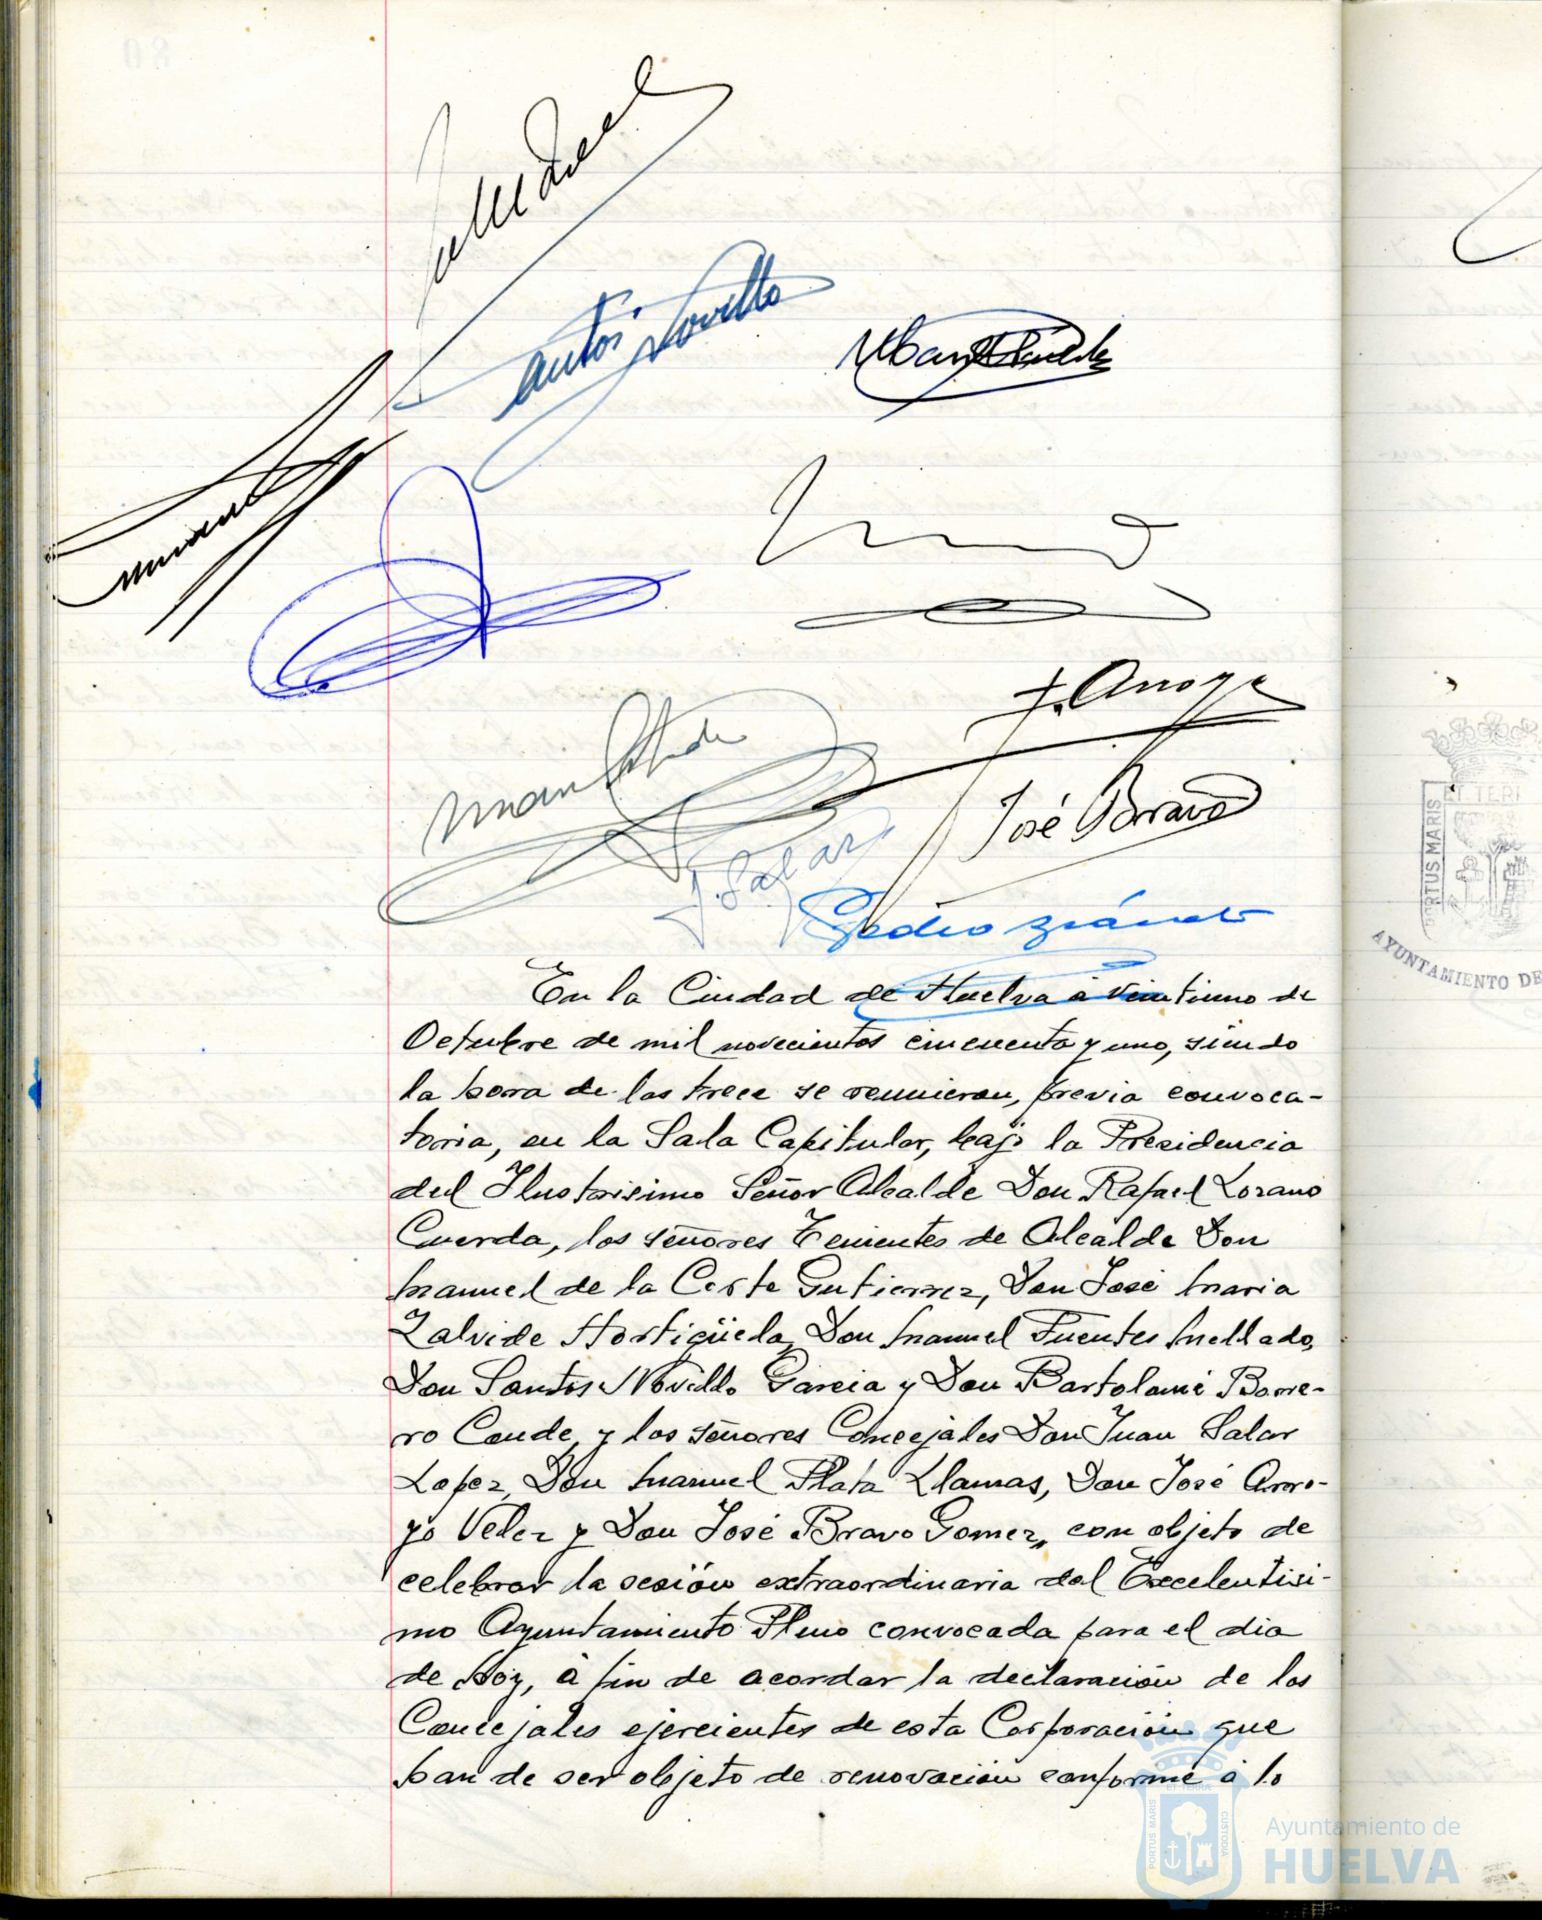 Santos Novillo
J. Arroyo
José Bravo
J. Salar
Pedro
En la Ciudad de Huelva a veintiuno de
Octubre de mil novecientos cincuenta y uno, siendo
la hora de las trece se reunieron, previa convoca-
toria, en la Sala Capitular, bajo la Presidencia
del Ilustrisimo Señor Alcalde Don Rafael Lozano
Cuerda, los señores Tenientes de Alcalde Don
Manuel de la Corte Gutierrez, Don José Maria
Zalvide Hortigüela, Don Manuel Fuentes Mellado,
Don Santos Novillo Garcia y Don Bartolomé Borre-
ro Conde, y los señores Concejales Don Juan Salar
Lopez, Don Manuel Plata Llamas, Don José Arro-
yo Velez y Don José Bravo Gomez, con objeto de
celebrar la sesión extraordinaria del Excelentisi-
mo Ayuntamiento Pleno convocada para el dia
de hoy, a fin de acordar la declaración de los
Concejales ejercientes de esta Corporación que
han de ser objeto de renovación conforme a lo
PORTUS MARIS
ET TERR
AYUNTAMIENTO DE
PORTUS MARIS
ET TERRÆ
CUSTODIA
Ayuntamiento de
HUELVA